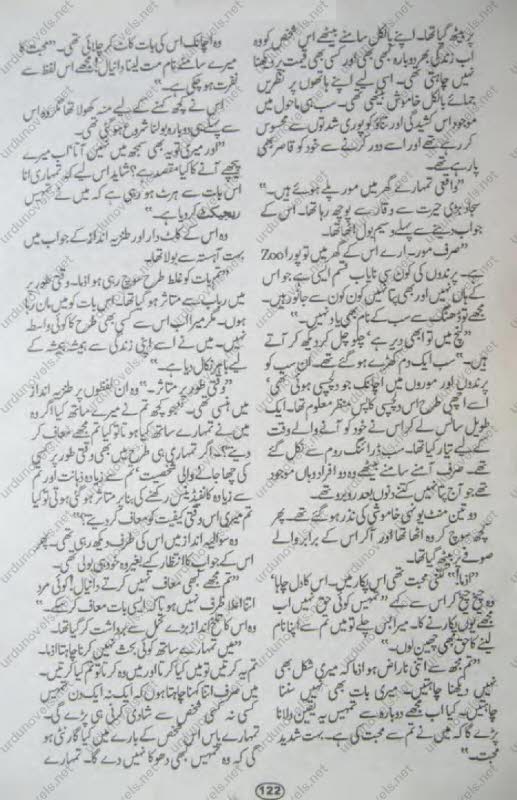 پر بیٹھ گیا تھا۔ اپنے بالکل سامنے بیٹھے اس شخص کو وہ
اب زندگی بھر دوبارہ کبھی بھی اور کسی بھی قیمت پر دیکھنا
نہیں چاہتی تھی۔ اسی لیے اپنے ہاتھوں پر نظریں
جمائے بالکل خاموش بیٹھی تھی۔ سب ہی ماحول میں
موجود اس کشیدگی اور تناؤ کو پوری شدتوں سے محسوس
کر رہے تھے اور اسے دور کرنے سے خود کو قاصر بھی
پا رہے تھے۔
"واقعی تمہارے گھر میں مور پلے ہوئے ہیں۔"
سجاد بڑی حیرت سے وقار سے پوچھ رہا تھا۔ اس کے
جواب دینے سے پہلے وسیم بول اٹھا تھا۔
"صرف مور۔ ارے اس کے گھر میں تو پورا Zoo
ہے۔ پرندوں کی کون سی نایاب قسم ایسی ہے جو اس
کے ہاں نہیں اور بھی پتا نہیں کون کون سے جانور ہیں۔
مجھے تو ڈھنگ سے سب کے نام بھی یاد نہیں۔"
"لنچ میں تو ابھی دیر ہے چلو چل کر دیکھ کر آتے
ہیں۔" سب ایک دم کھڑے ہو گئے تھے۔ ان سب کو
پرندوں اور موروں میں اچانک جو دلچسپی ہوئی تھی،
اسے اچھی طرح اس دلچسپی کا پس منظر معلوم تھا۔ ایک
طویل سانس لے کر اس نے خود کو آنے والے وقت
کے لیے تیار کیا تھا۔ سب ڈرائنگ روم سے نکل گئے
تھے۔ صرف آمنے سامنے بیٹھے وہ دو افراد وہاں موجود
تھے جو آج پتا نہیں کتنے دنوں بعد روبرو تھے۔
دو تین منٹ یونہی خاموشی کی نذر ہو گئے تھے۔ پھر
کچھ سوچ کر وہ اٹھا تھا اور آ کر اس کے برابر والے
صوفے پر بیٹھ گیا تھا۔
کتنی محبت تھی اس پکار میں۔ اس کا دل چاہا
وہ چیخ چیخ کر اس سے کہے "تمہیں کوئی حق نہیں اب
مجھے یوں پکارنے کا۔ میرا بس چلے تو میں تم سے اپنا نام
لینے کا حق بھی چھین لوں۔"
"تم مجھ سے اتنی ناراض ہو کہ میری شکل بھی
نہیں دیکھنا چاہتیں۔ میری بات بھی نہیں سننا
چاہتیں۔ کیا اب مجھے دوبارہ سے تمہیں یہ یقین دلانا
پڑے گا کہ میں نے تم سے محبت کی ہے۔ بہت شدید
محبت۔"
وہ اچانک اس کی بات کاٹ کر چلائی تھی۔ "محبت کا
میرے سامنے نام مت لینا دانیال! مجھے اس لفظ سے
نفرت ہو چکی ہے۔"
اس نے کچھ کہنے کے لیے منہ کھولا تھا مگر وہ اس
سے پہلے ہی دوبارہ بولنا شروع ہو گئی تھی۔
"اور میری تو یہ بھی سمجھ میں نہیں آتا اب میرے
پیچھے آنے کا کیا مقصد ہے؟ شاید اس لیے کہ تمہاری انا
اس بات سے ہرٹ ہو رہی ہے کہ میں نے تمہیں
ریجیکٹ کر دیا ہے۔"
وہ اس کے کاٹ دار اور طنزیہ انداز کے جواب میں
بہت آہستہ سے بولا تھا۔
"تم بات کو غلط طرح سوچ رہی ہو۔ وقتی طور پر
میں رباب سے متاثر ہو گیا تھا۔ اس بات کو میں مان رہا
ہوں۔ مگر میرا اب اس سے کسی بھی طرح کا کوئی واسطہ
نہیں۔ میں نے اسے اپنی زندگی سے ہمیشہ ہمیشہ کے
لیے باہر نکال دیا ہے۔"
"وقتی طور پر متاثر۔" وہ ان لفظوں پر طنزیہ انداز
میں ہنسی تھی۔ "جو کچھ تم نے میرے ساتھ کیا اگر وہ
میں نے تمہارے ساتھ کیا ہوتا تو کیا تم مجھے معاف کر
دیتے؟ اگر تمہاری ہی طرح میں بھی وقتی طور پر کسی
کی چھا جانے والی شخصیت، تم سے زیادہ ذہانت اور تم
سے زیادہ کانفیڈنس رکھنے کی بنا پر متاثر ہو گئی ہوتی تو کیا
تم میری اس وقتی کیفیت کو معاف کر دیتے؟"
وہ سوالیہ انداز میں اس کی طرف دیکھ رہی تھی۔ پھر
اس کے جواب کا انتظار کیے بغیر وہ خود ہی بولی تھی۔
"تم مجھے کبھی معاف نہیں کرتے دانیال! کوئی مرد
اتنا اعلا ظرف نہیں ہوتا کہ ایسی بات معاف کر سکے۔"
وہ اس کا تلخ انداز بڑے تحمل سے برداشت کر گیا تھا۔
"میں تمہارے ساتھ کوئی بحث نہیں کرنا چاہتا
تم یہ کرتیں تو میں کیا کرتا اور میں وہ کرتا تو تم کیا کرتیں۔
میں صرف اتنا کہنا چاہتا ہوں کہ ایک نہ ایک دن تمہیں
کسی نہ کسی شخص سے شادی کرنی ہی پڑے گی۔
تمہارے پاس اس شخص کے بارے میں کیا گارنٹی ہو
گی کہ وہ تمہیں کبھی دھوکا نہیں دے گا۔ تمہارے
122
urdunovels.net